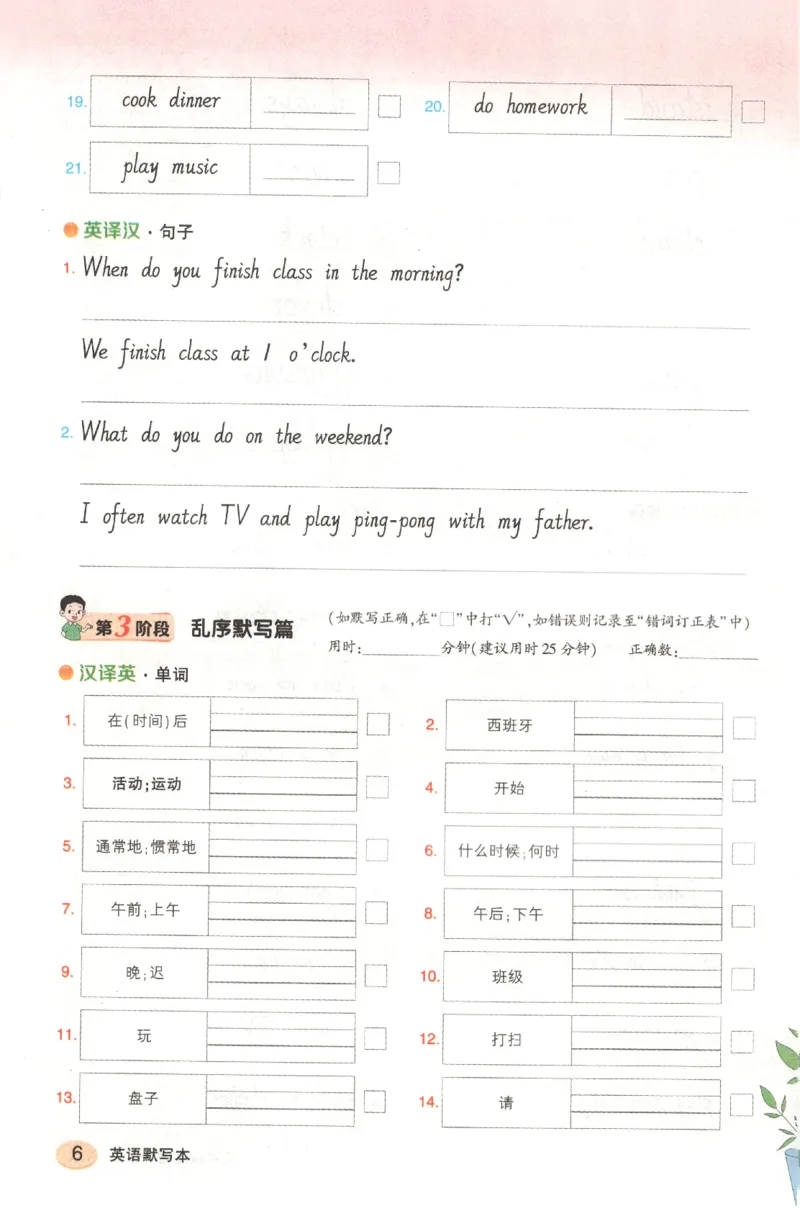 19. cook dinner
20. do homework
21. play music
英译汉·句子
1. When do you finish class in the morning?
We finish class at 1 o'clock.
2. What do you do on the weekend?
I often watch TV and play ping-pong with my father.
第3阶段 乱序默写篇
(如默写正确,在“□”中打“√”,如错误则记录至“错词订正表”中)
用时:________分钟(建议用时25分钟) 正确数:________
汉译英·单词
1. 在(时间)后
2. 西班牙
3. 活动;运动
4. 开始
5. 通常地;惯常地
6. 什么时候;何时
7. 午前;上午
8. 午后;下午
9. 晚;迟
10. 班级
11. 玩
12. 打扫
13. 盘子
14. 请
6 英语默写本